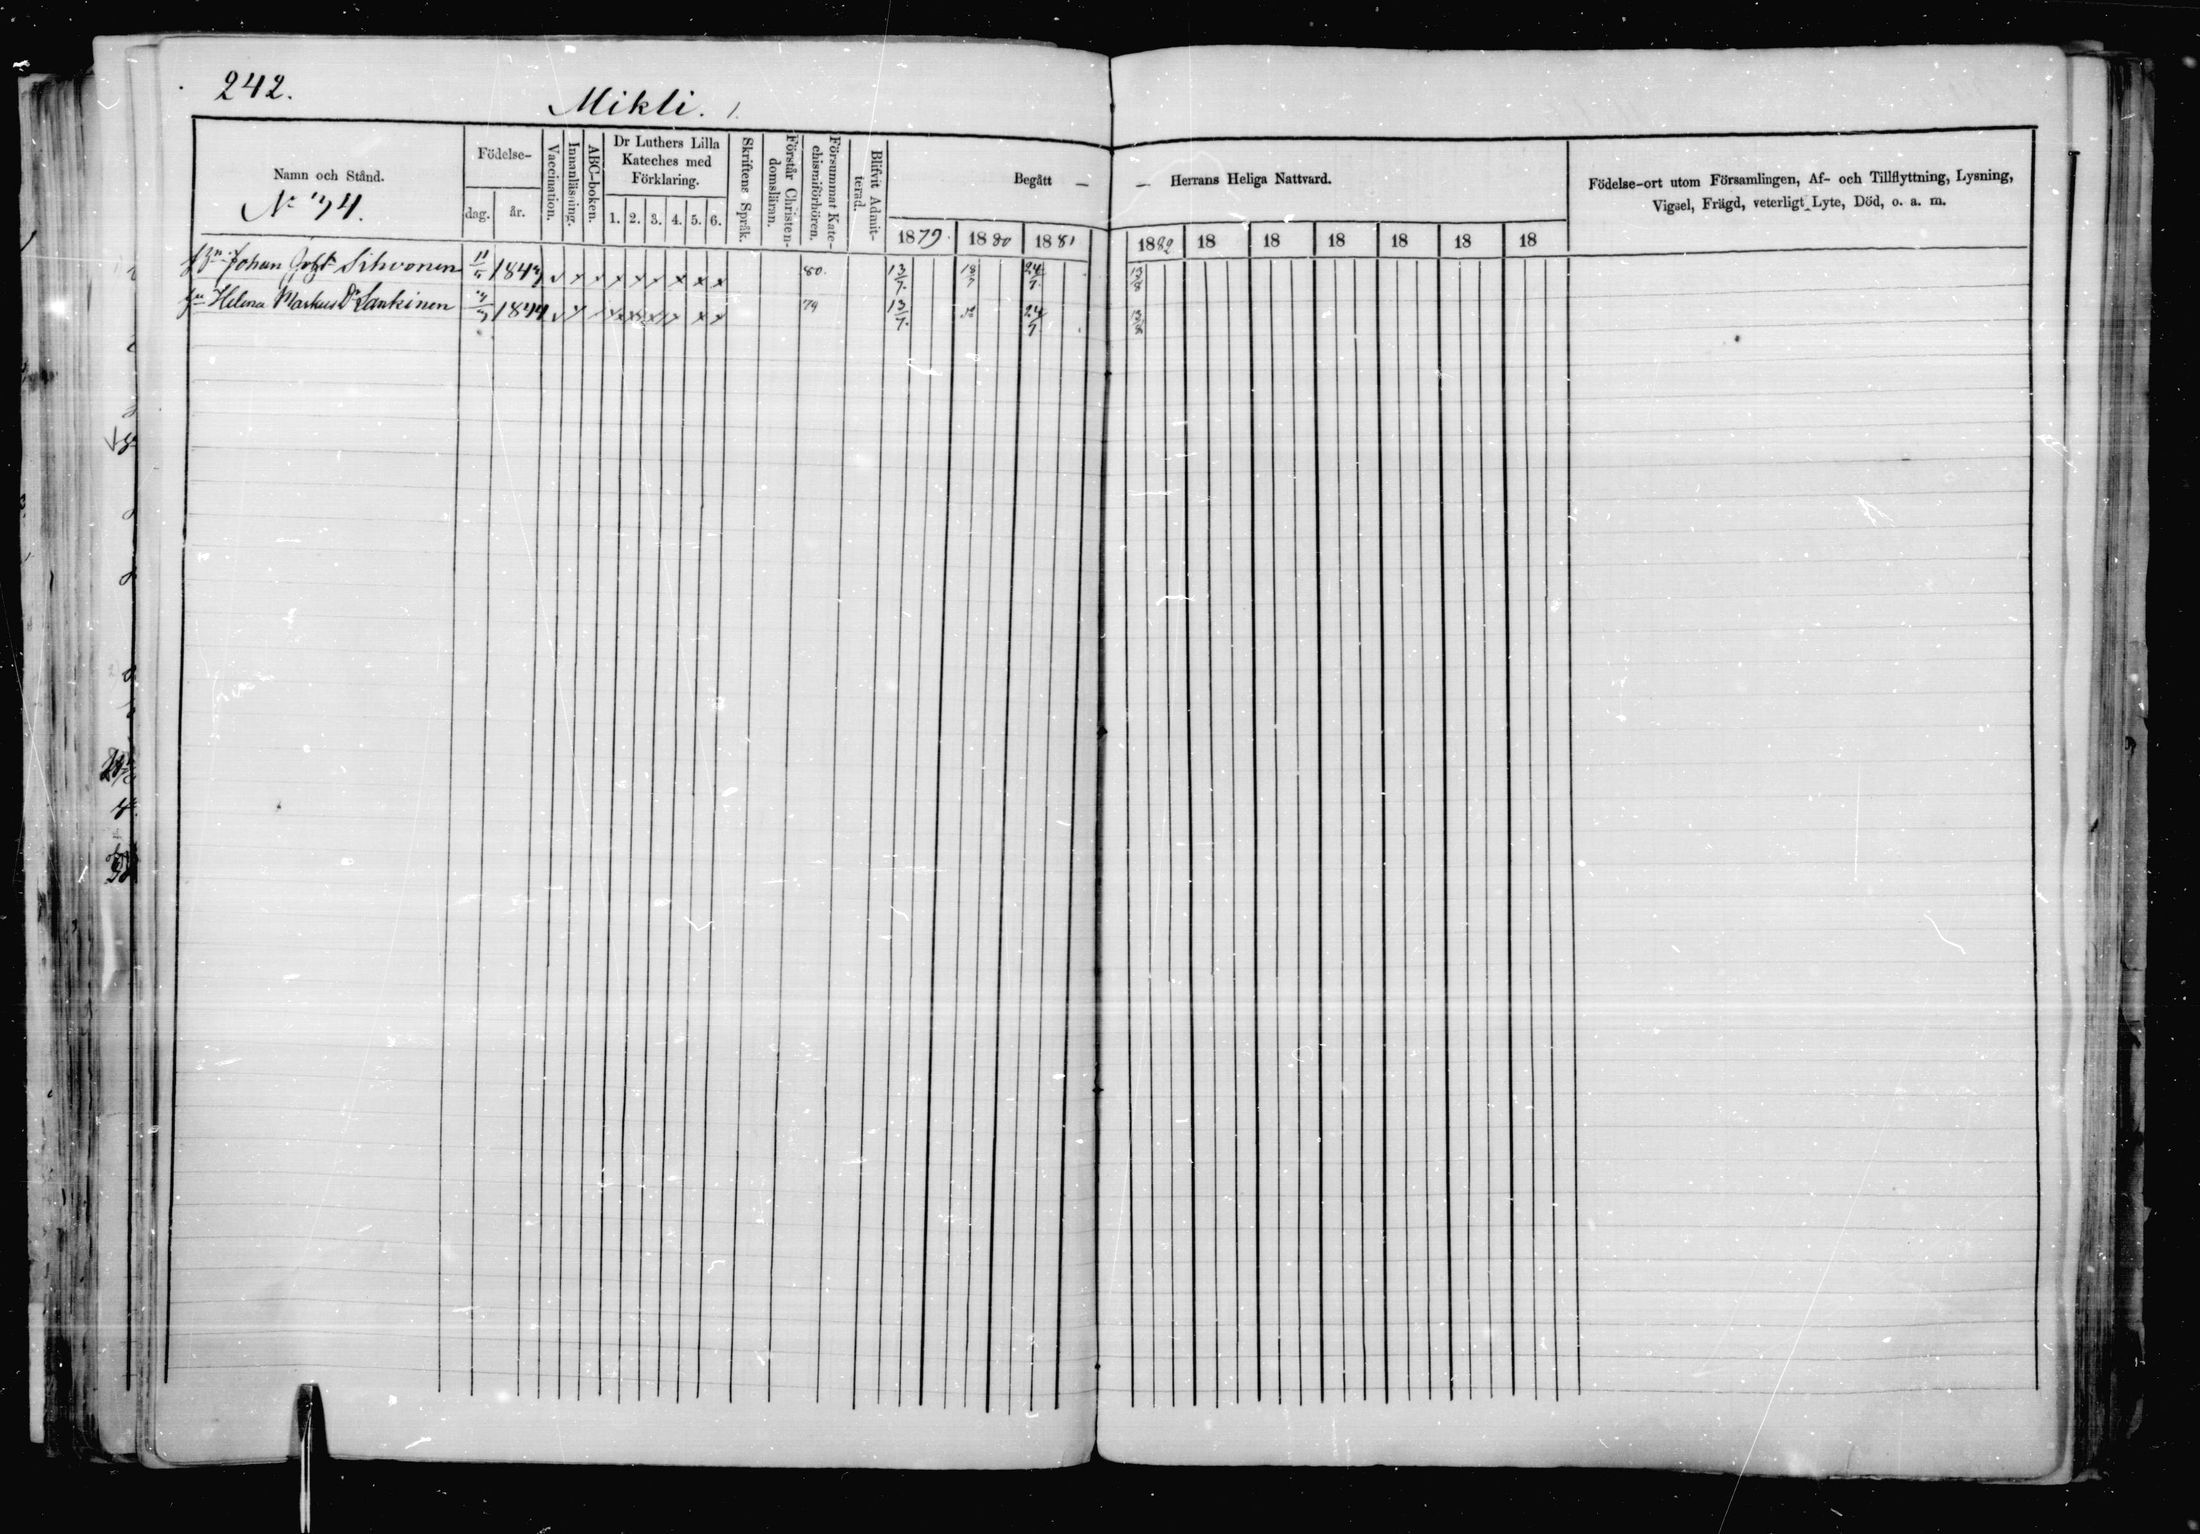 242.
Mikli.
Namn och Stånd.
No 74.
Födelse-
dag. år.
Vaccination.
Innanläsning.
ABC-boken.
Dr Luthers Lilla
Kateches med
Förklaring.
1. 2. 3. 4. 5. 6.
Skriftens Språk.
Förstår Christen-
domsläran.
Försummat Kate-
chismiförhören.
Blifvit Admit-
terad.
Begått —
— Herrans Heliga Nattvard.
Födelse-ort utom Församlingen, Af- och Tillflyttning, Lysning,
Vigsel, Frägd, veterligt Lyte, Död, o. a. m.
1879. 1880 1881 1882 18 18 18 18 18 18
Johan Sihvonen 11 1847 x x x x x x x x 80. 13/7. 18/7 24/7. 13/8
Helena Markus Dr Lankinen 1844 79 13/7. 24/7 13/8